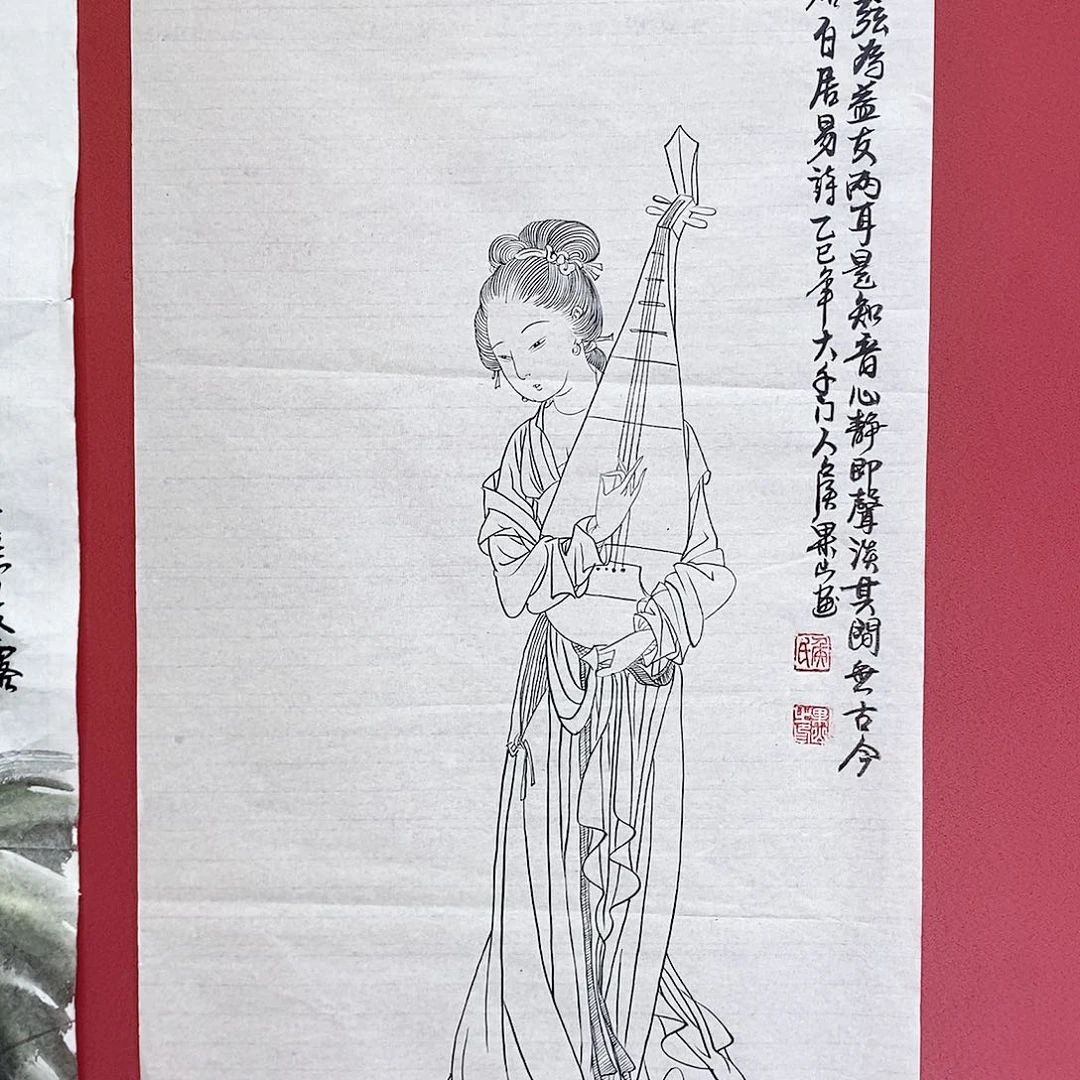 弦為益友两耳是知音心静即聲淡其間無古今
白居易詩乙巳年大千门人侯果山画